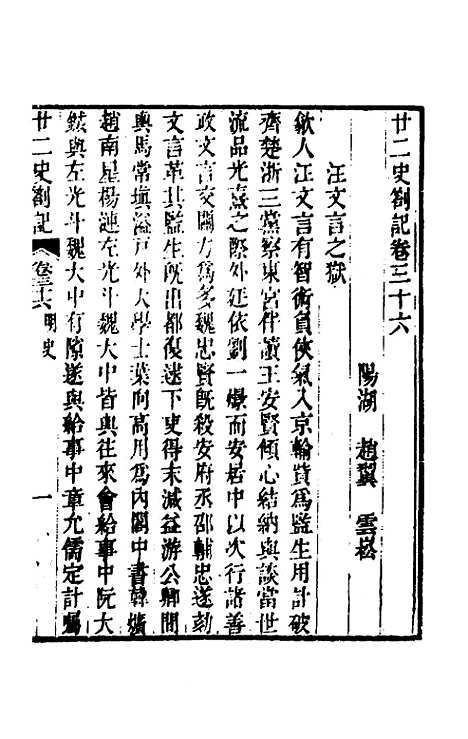 廿二史劄記卷三十六
陽湖　趙翼　雲崧
汪文言之獄
歙人汪文言有智術負俠氣入京輸貲爲監生用計破
齊楚浙三黨察東宮伴讀王安賢傾心結納與談當世
流品光熹之際外廷依劉一燝而安居中以次行諸善
政文言交關力爲多魏忠賢旣殺安府丞邵輔忠遂劾
文言革其監生旣出都復逮下吏得末減益游公卿間
輿馬常塡溢戸外大學士葉向高用爲內閣中書韓爌
趙南星楊漣左光斗魏大中皆與往來會給事中阮大
鋮與左光斗魏大中有隙遂與給事中章允儒定計囑
廿二史劄記　卷三十六　明史　一